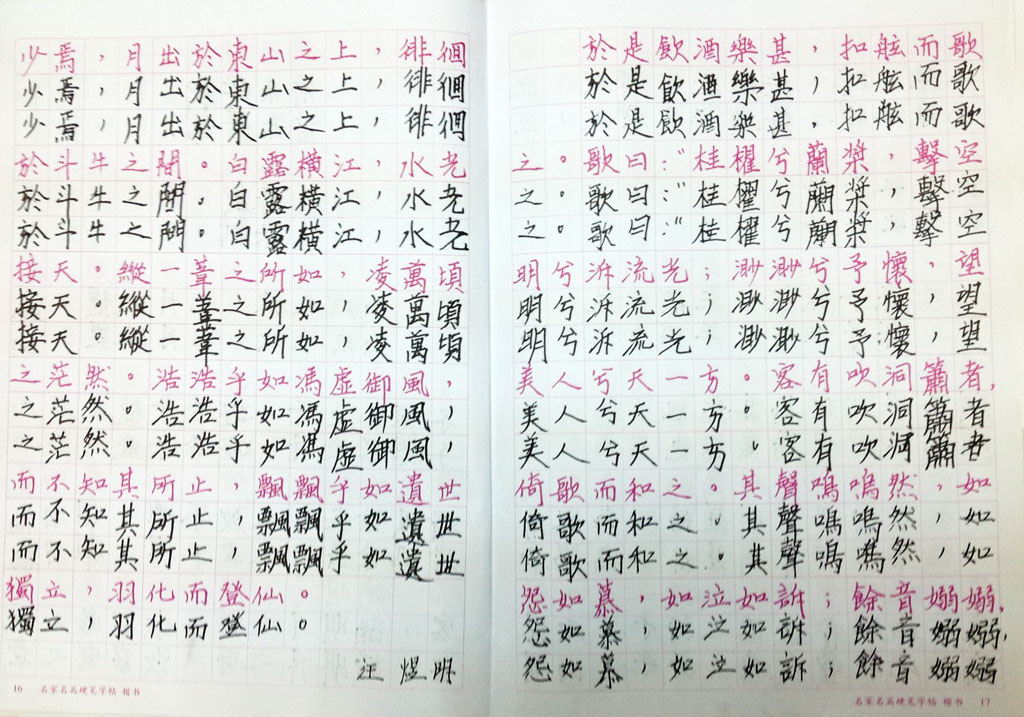 少焉，月出於東山之上，徘徊
少焉，月出於東山之上，徘徊
少焉，月出於東山之上，徘徊
於斗牛之間。白露橫江，水光
於斗牛之間。白露橫江，水光
於斗牛之間。白露橫江，水光
接天。縱一葦之所如，凌萬頃
接天。縱一葦之所如，凌萬頃
接天。縱一葦之所如，凌萬頃
之茫然。浩浩乎如馮虛御風，
之茫然。浩浩乎如馮虛御風，
之茫然。浩浩乎如馮虛御風，
而不知其所止，飄飄乎如遺世
而不知其所止，飄飄乎如遺世
而不知其所止，飄飄乎如遺世
獨立，羽化而登仙。
獨立，羽化而登仙。
汪煜明
16 名家名篇硬笔字帖 楷书
於是飲酒樂甚，扣舷而歌
於是飲酒樂甚，扣舷而歌
於是飲酒樂甚，扣舷而歌
之。歌曰："桂櫂兮蘭槳，擊空
之。歌曰："桂櫂兮蘭槳，擊空
之。歌曰："桂櫂兮蘭槳，擊空
明兮泝流光；渺渺兮予懷，望
明兮泝流光；渺渺兮予懷，望
明兮泝流光；渺渺兮予懷，望
美人兮天一方。客有吹洞簫者，
美人兮天一方。客有吹洞簫者
美人兮天一方。客有吹洞簫者
倚歌而和之。其聲嗚嗚然，如
倚歌而和之。其聲嗚嗚然，如
倚歌而和之。其聲嗚嗚然，如
怨如慕，如泣如訴；餘音嫋嫋，
怨如慕，如泣如訴；餘音嫋嫋，
怨如慕，如泣如訴；餘音嫋嫋
名家名篇硬笔字帖 楷书 17